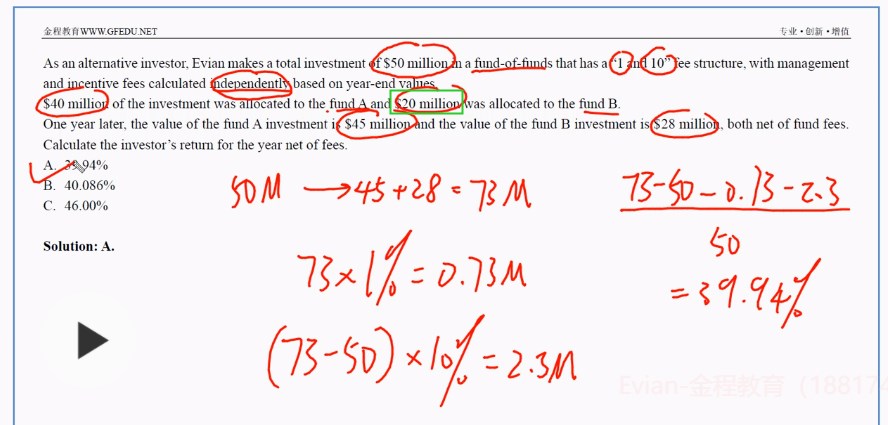 金程教育WWW.GFEDU.NET
专业·创新·增值
As an alternative investor, Evian makes a total investment of $50 million in a fund-of-funds that has a "1 and 10" fee structure, with management
and incentive fees calculated independently based on year-end values.
$40 million of the investment was allocated to the fund A and $20 million was allocated to the fund B.
One year later, the value of the fund A investment is $45 million and the value of the fund B investment is $28 million, both net of fund fees.
Calculate the investor's return for the year net of fees.
A. 39.94%
B. 40.086%
C. 46.00%
Solution: A.
50M → 45+28 = 73M
73×1% = 0.73M
(73-50)×10% = 2.3M
73-50-0.73-2.3
50
= 39.94%
Evian-金程教育（188174